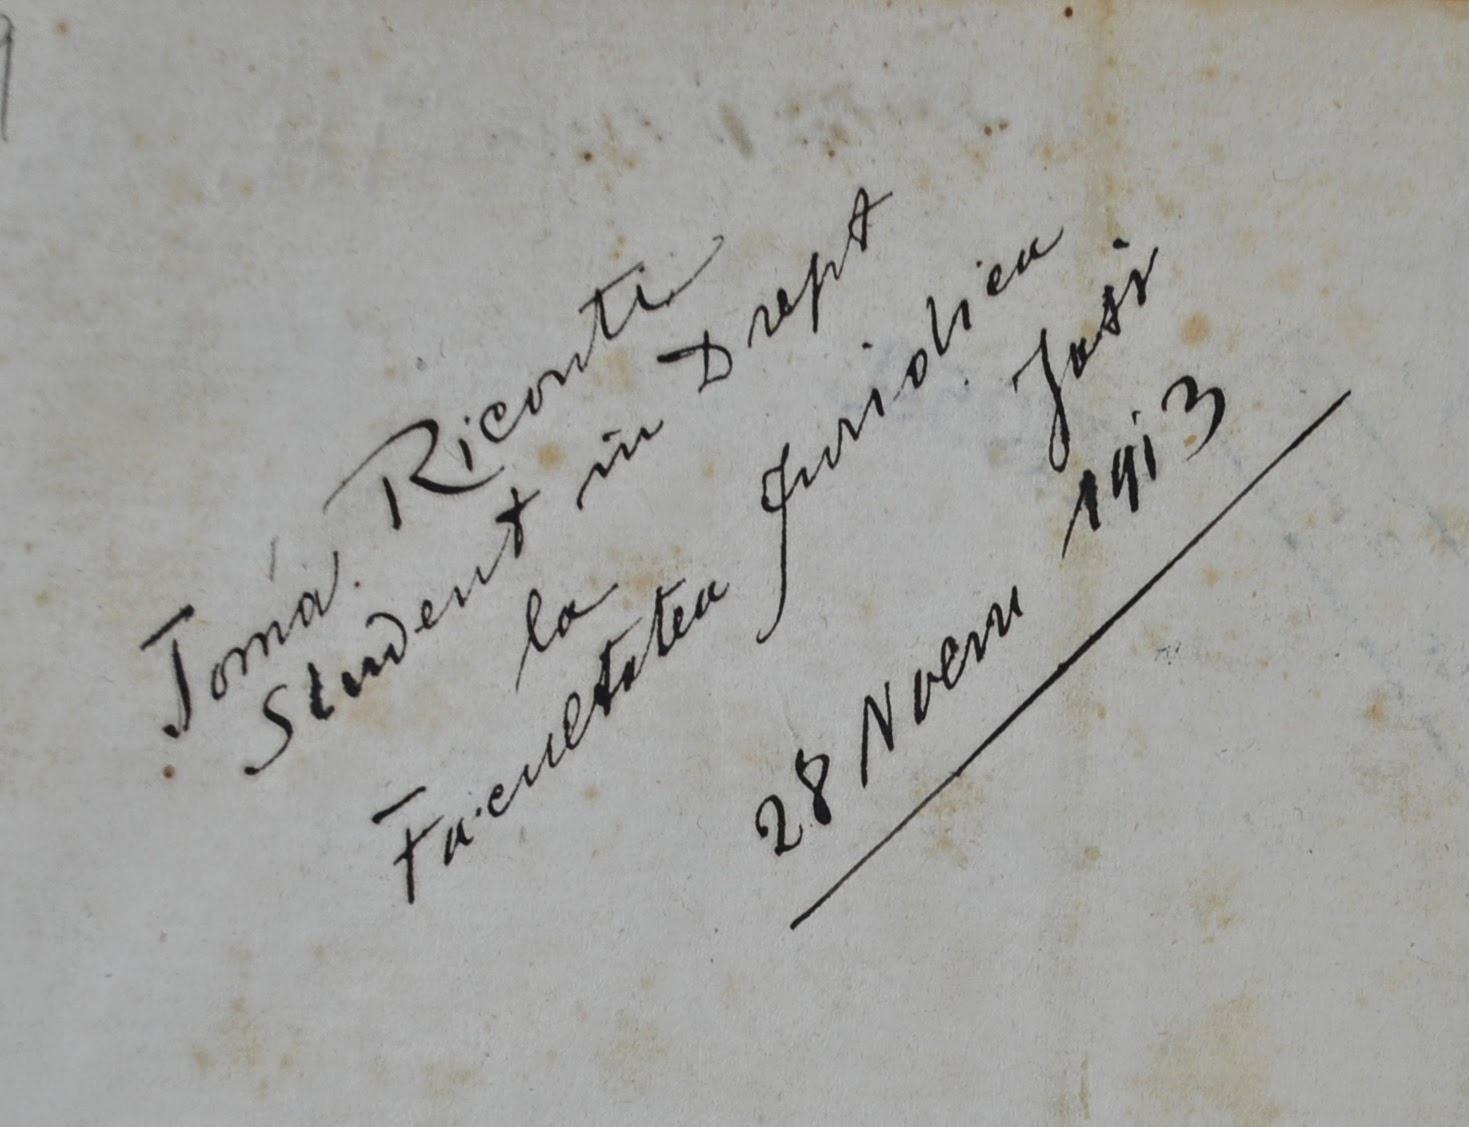 Toma Riconti
Student in Drept
la
Facultatea Juridica
Jasi
28 Noemv 1913